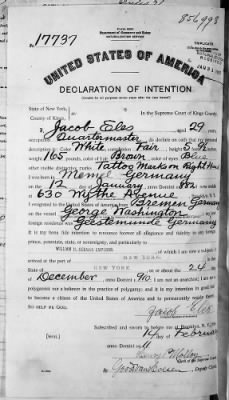 856993
Department of Commerce and Labor
NATURALIZATION SERVICE
No. 17737
UNITED STATES OF AMERICA
DECLARATION OF INTENTION
State of New York,
County of Kings,
In the Supreme Court of Kings County
I, Jacob Eles, aged 29 years,
occupation Quartermaster, do declare on oath that my personal
description is: Color White, complexion Fair, height 5
weight 165 pounds, color of hair Brown, color of eyes Blue
other visible distinctive marks Tattoo Mark on Right Hand
I was born in Memel Germany
on the 12 day of January, anno Domini
630 Avenue
I emigrated to the United States of America from Bremen Germany
George Washington
Geestemunde Germany
It is my bona fide intention to renounce forever all allegiance and fidelity to any foreign
prince, potentate, state, or sovereignty, and particularly to
of which I am now a subject; I
arrived at the port of NEW YORK, in the
State of NEW YORK, on or about the 24 day
of December, anno Domini 1910; I am not an anarchist; I am not a
polygamist nor a believer in the practice of polygamy; and it is my intention in good faith
to become a citizen of the United States of America and to permanently reside therein:
SO HELP ME GOD.
Jacob Eles
Subscribed and sworn to before me
[SEAL]
14 day of February
anno Domini 1911
Clerk of the Supreme Court